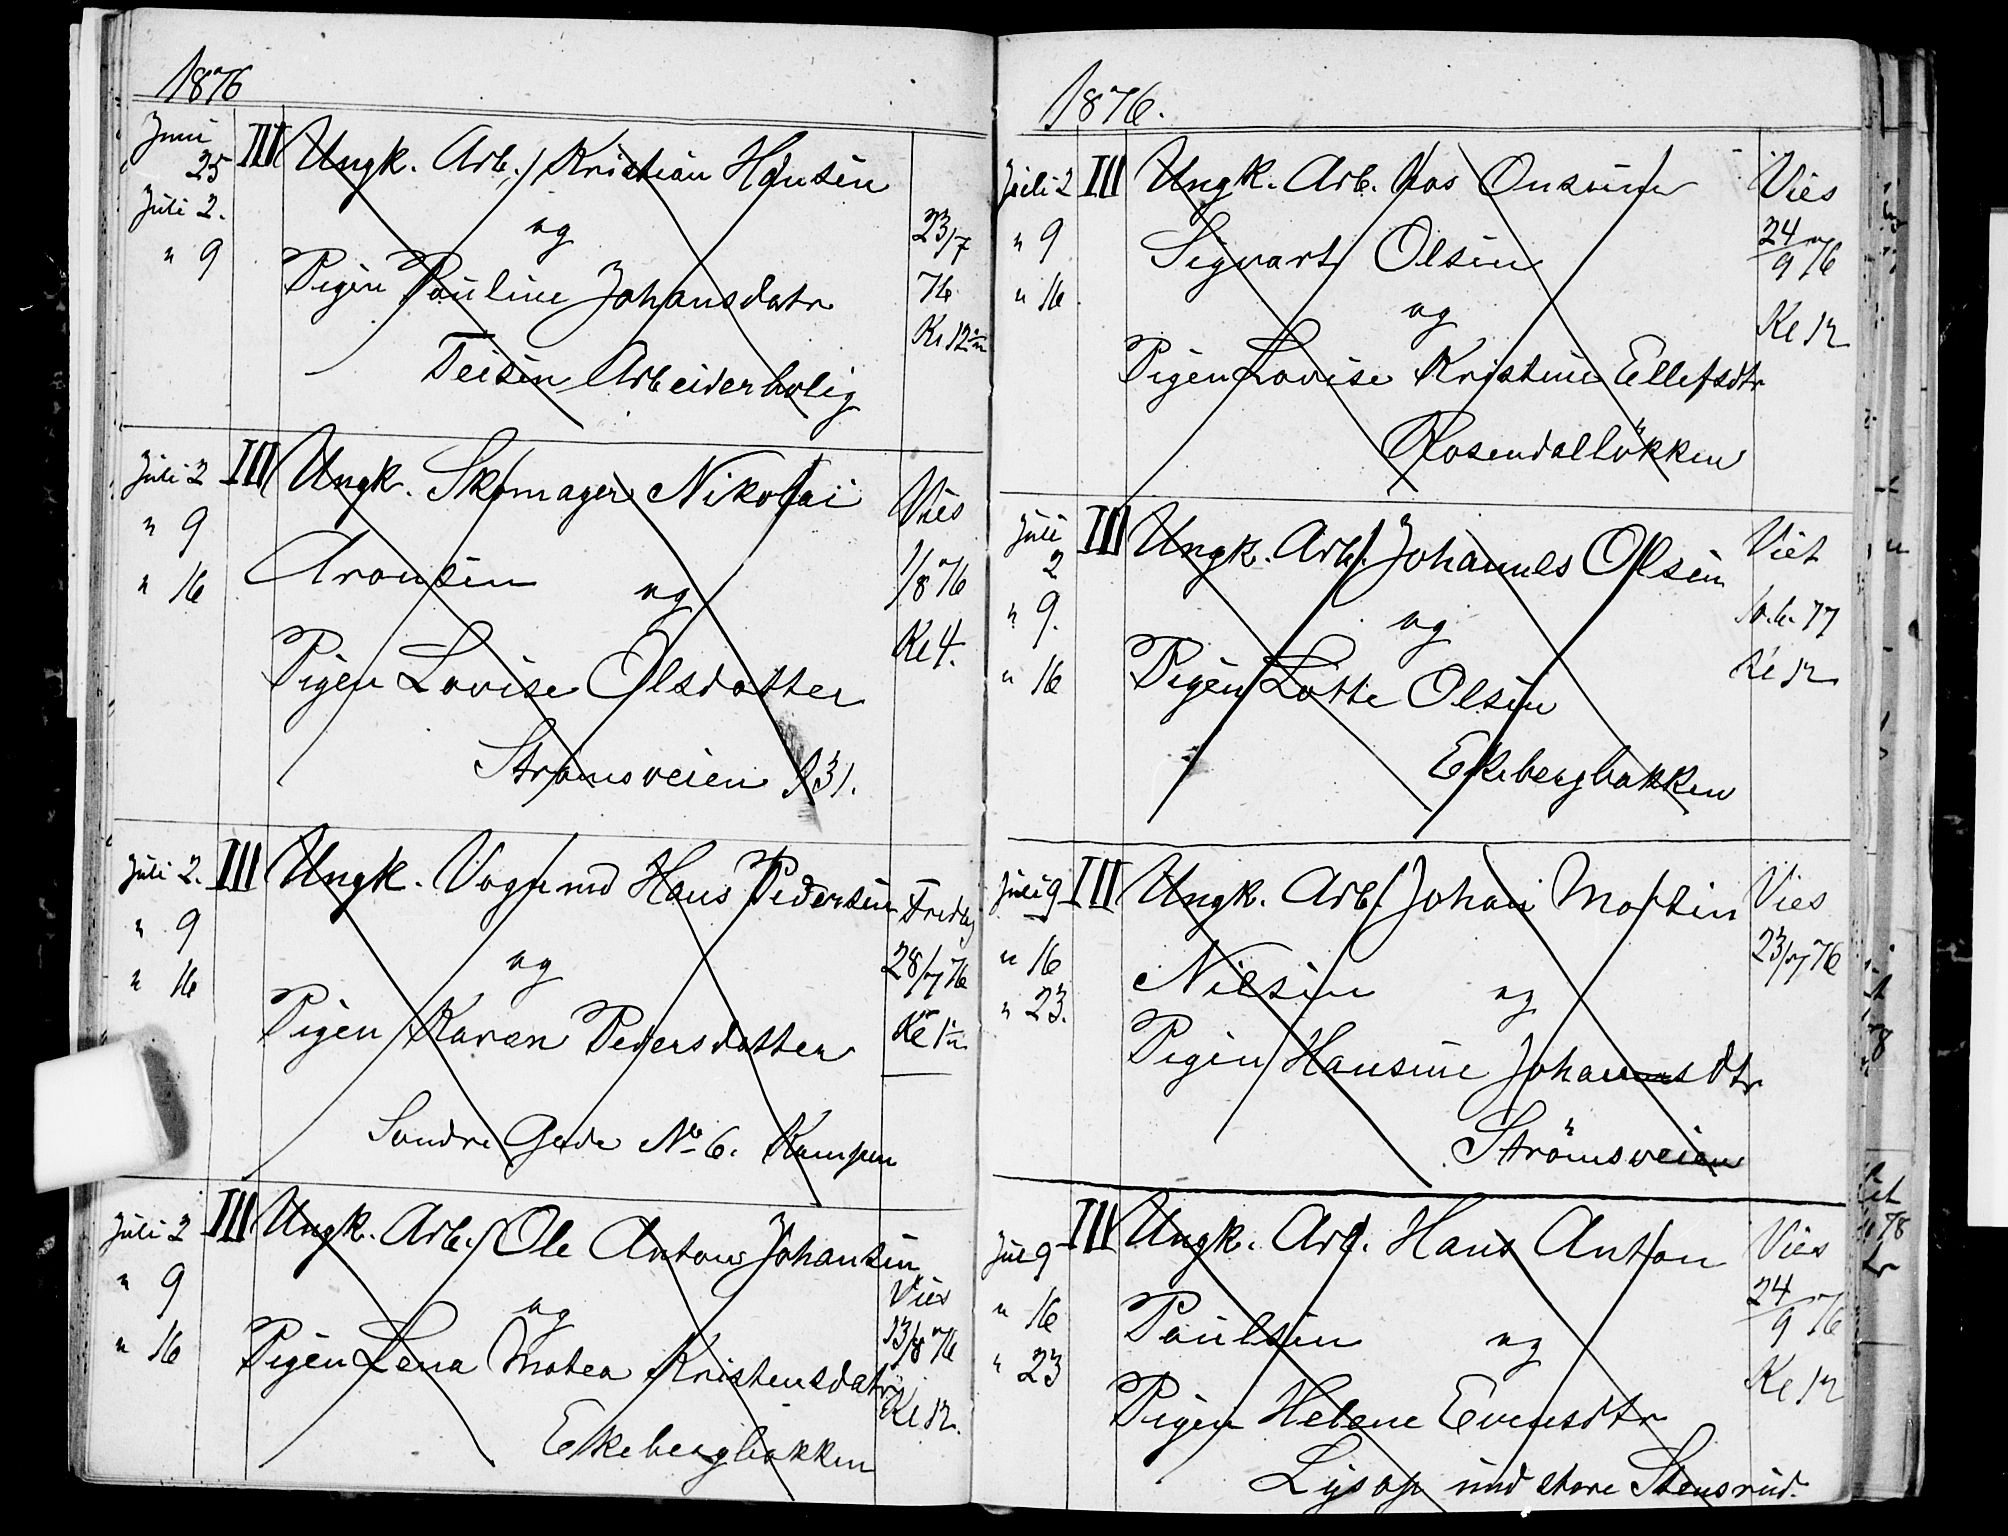 1876
Juni 25 III Ungk. Arb. Kristian Hansen 23/7
Juli 2. og 76
" 9 Pigen Pauline Johansdatr Kl 12
Teisen Arbeiderbolig
Juli 2 III Ungk. Skomager Nikolai Vies
" 9 Aronsen og 1/8 76
" 16 Pigen Lovise Olsdatter Kl 4.
Strømsveien 131.
Juli 2. III Ungk. Vognmd Hans Pedersen Fredag
" 9 og 28/7 76
" 16 Pigen Karen Pedersdatter Kl 1
Søndre Gade No 6. Kampen
Juli 2 III Ungk. Arb. Ole Anton Johansen Vies
" 9 og 13/8 76
" 16 Pigen Lena Mathea Kristensdatr Kl 12.
Ekebergbakken
1876.
Juli 2 III Ungk. Arb. hos Onsum Vies
" 9 Sigvart Olsen 24/9 76
" 16 og Kl 12
Pigen Lovise Kristine Ellefsdtr
Rosendalløkken
Juli 2 III Ungk. Arb. Johannes Olsen Viet
" 9. og 10.6.77
" 16 Pigen Lotte Olsen Kl 12
Ekebergbakken
Juli 9 III Ungk. Arb. Johan Martin Vies
" 16 Nilsen og 23/7 76
" 23. Pigen Hansine Johannesdtr
Strömsveien
Jul 9 III Ungk. Arb. Hans Anton Vies
" 16 Paulsen og 24/9 76
" 23 Pigen Helene Evensdtr Kl 12
Lysop und store Stensrud.